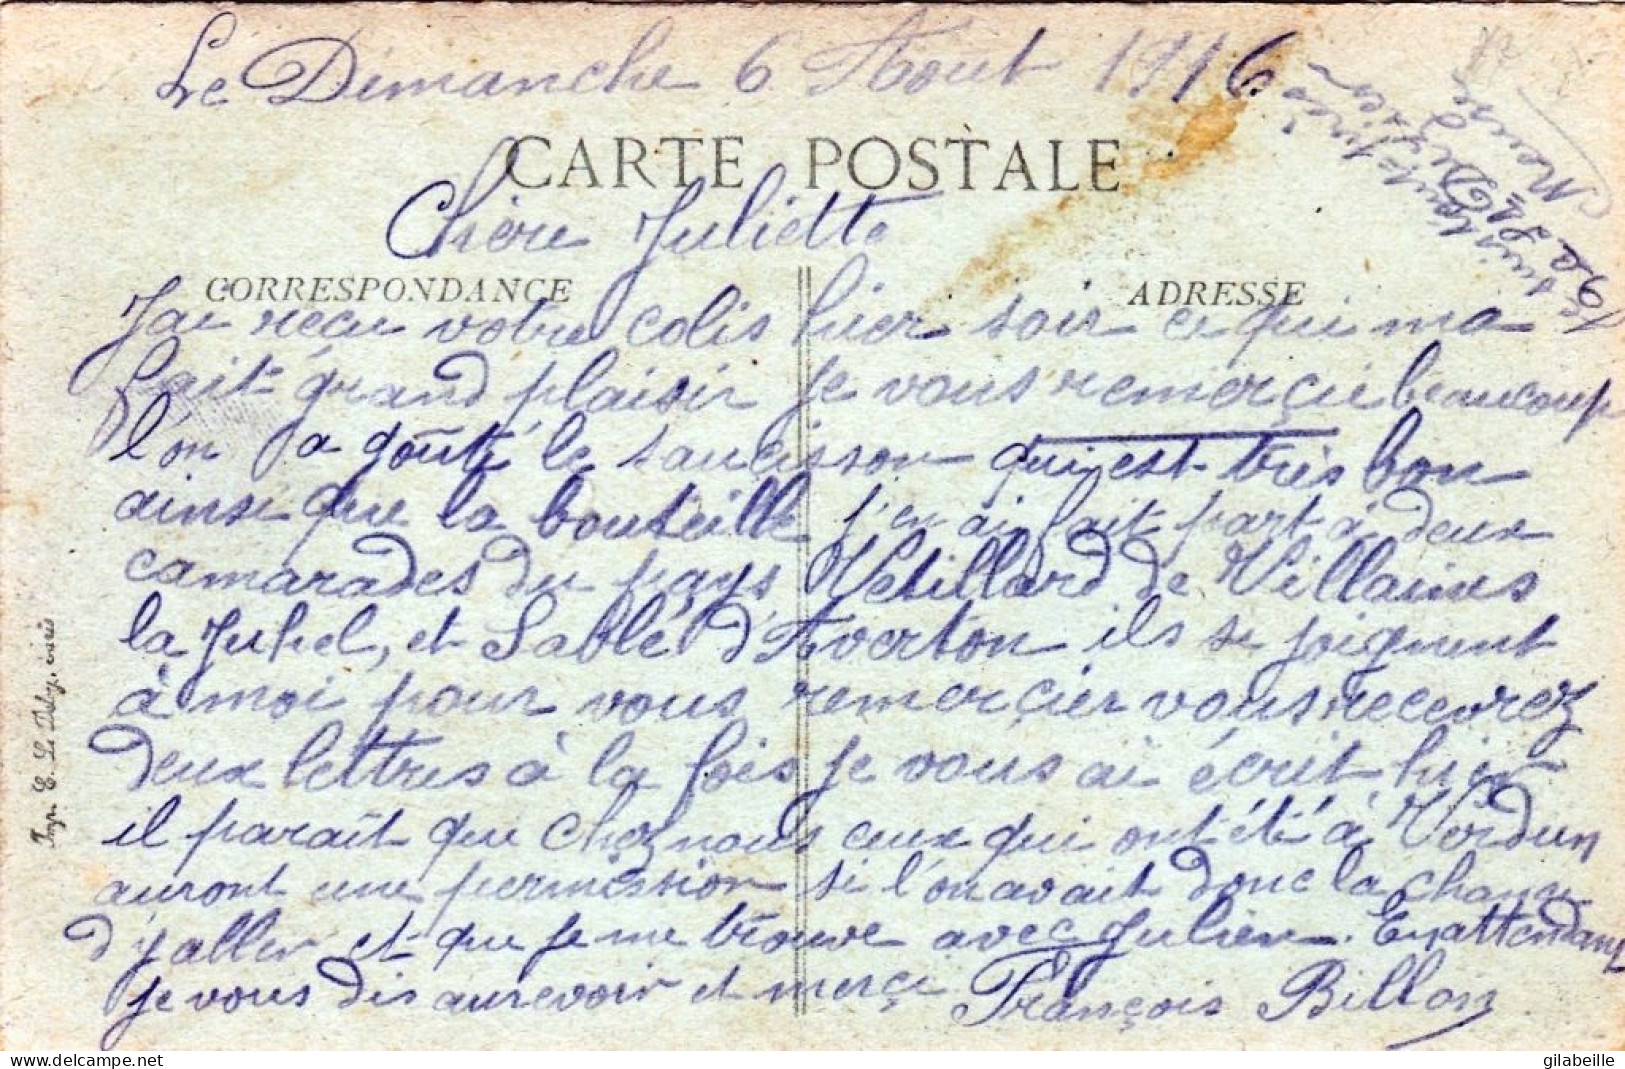 Le Dimanche 6 Aout 1916
CARTE POSTALE
Chère Juliette
CORRESPONDANCE
ADRESSE
J'ai reçu votre colis hier soir ce qui ma
fait grand plaisir je vous remerçie beaucoup
l'on a goûté le saucisson qui est très bon
ainsi que la bouteille j'en ai fait part à deux
camarades du pays Vetillard de Villaines
la Juhel, et Sablé d'Averton ils se joignent
à moi pour vous remerçier vous recevrez
deux lettres à la fois je vous ai écrit hier
il paraît que chez nous ceux qui ont été à Verdun
auront une permission si l'on avait donc la chance
d'y aller et que je me trouve avec Julien. En attendant
je vous dis aurevoir et merçi François Billon
Imp. E. Le Deley, Paris
gilabeille